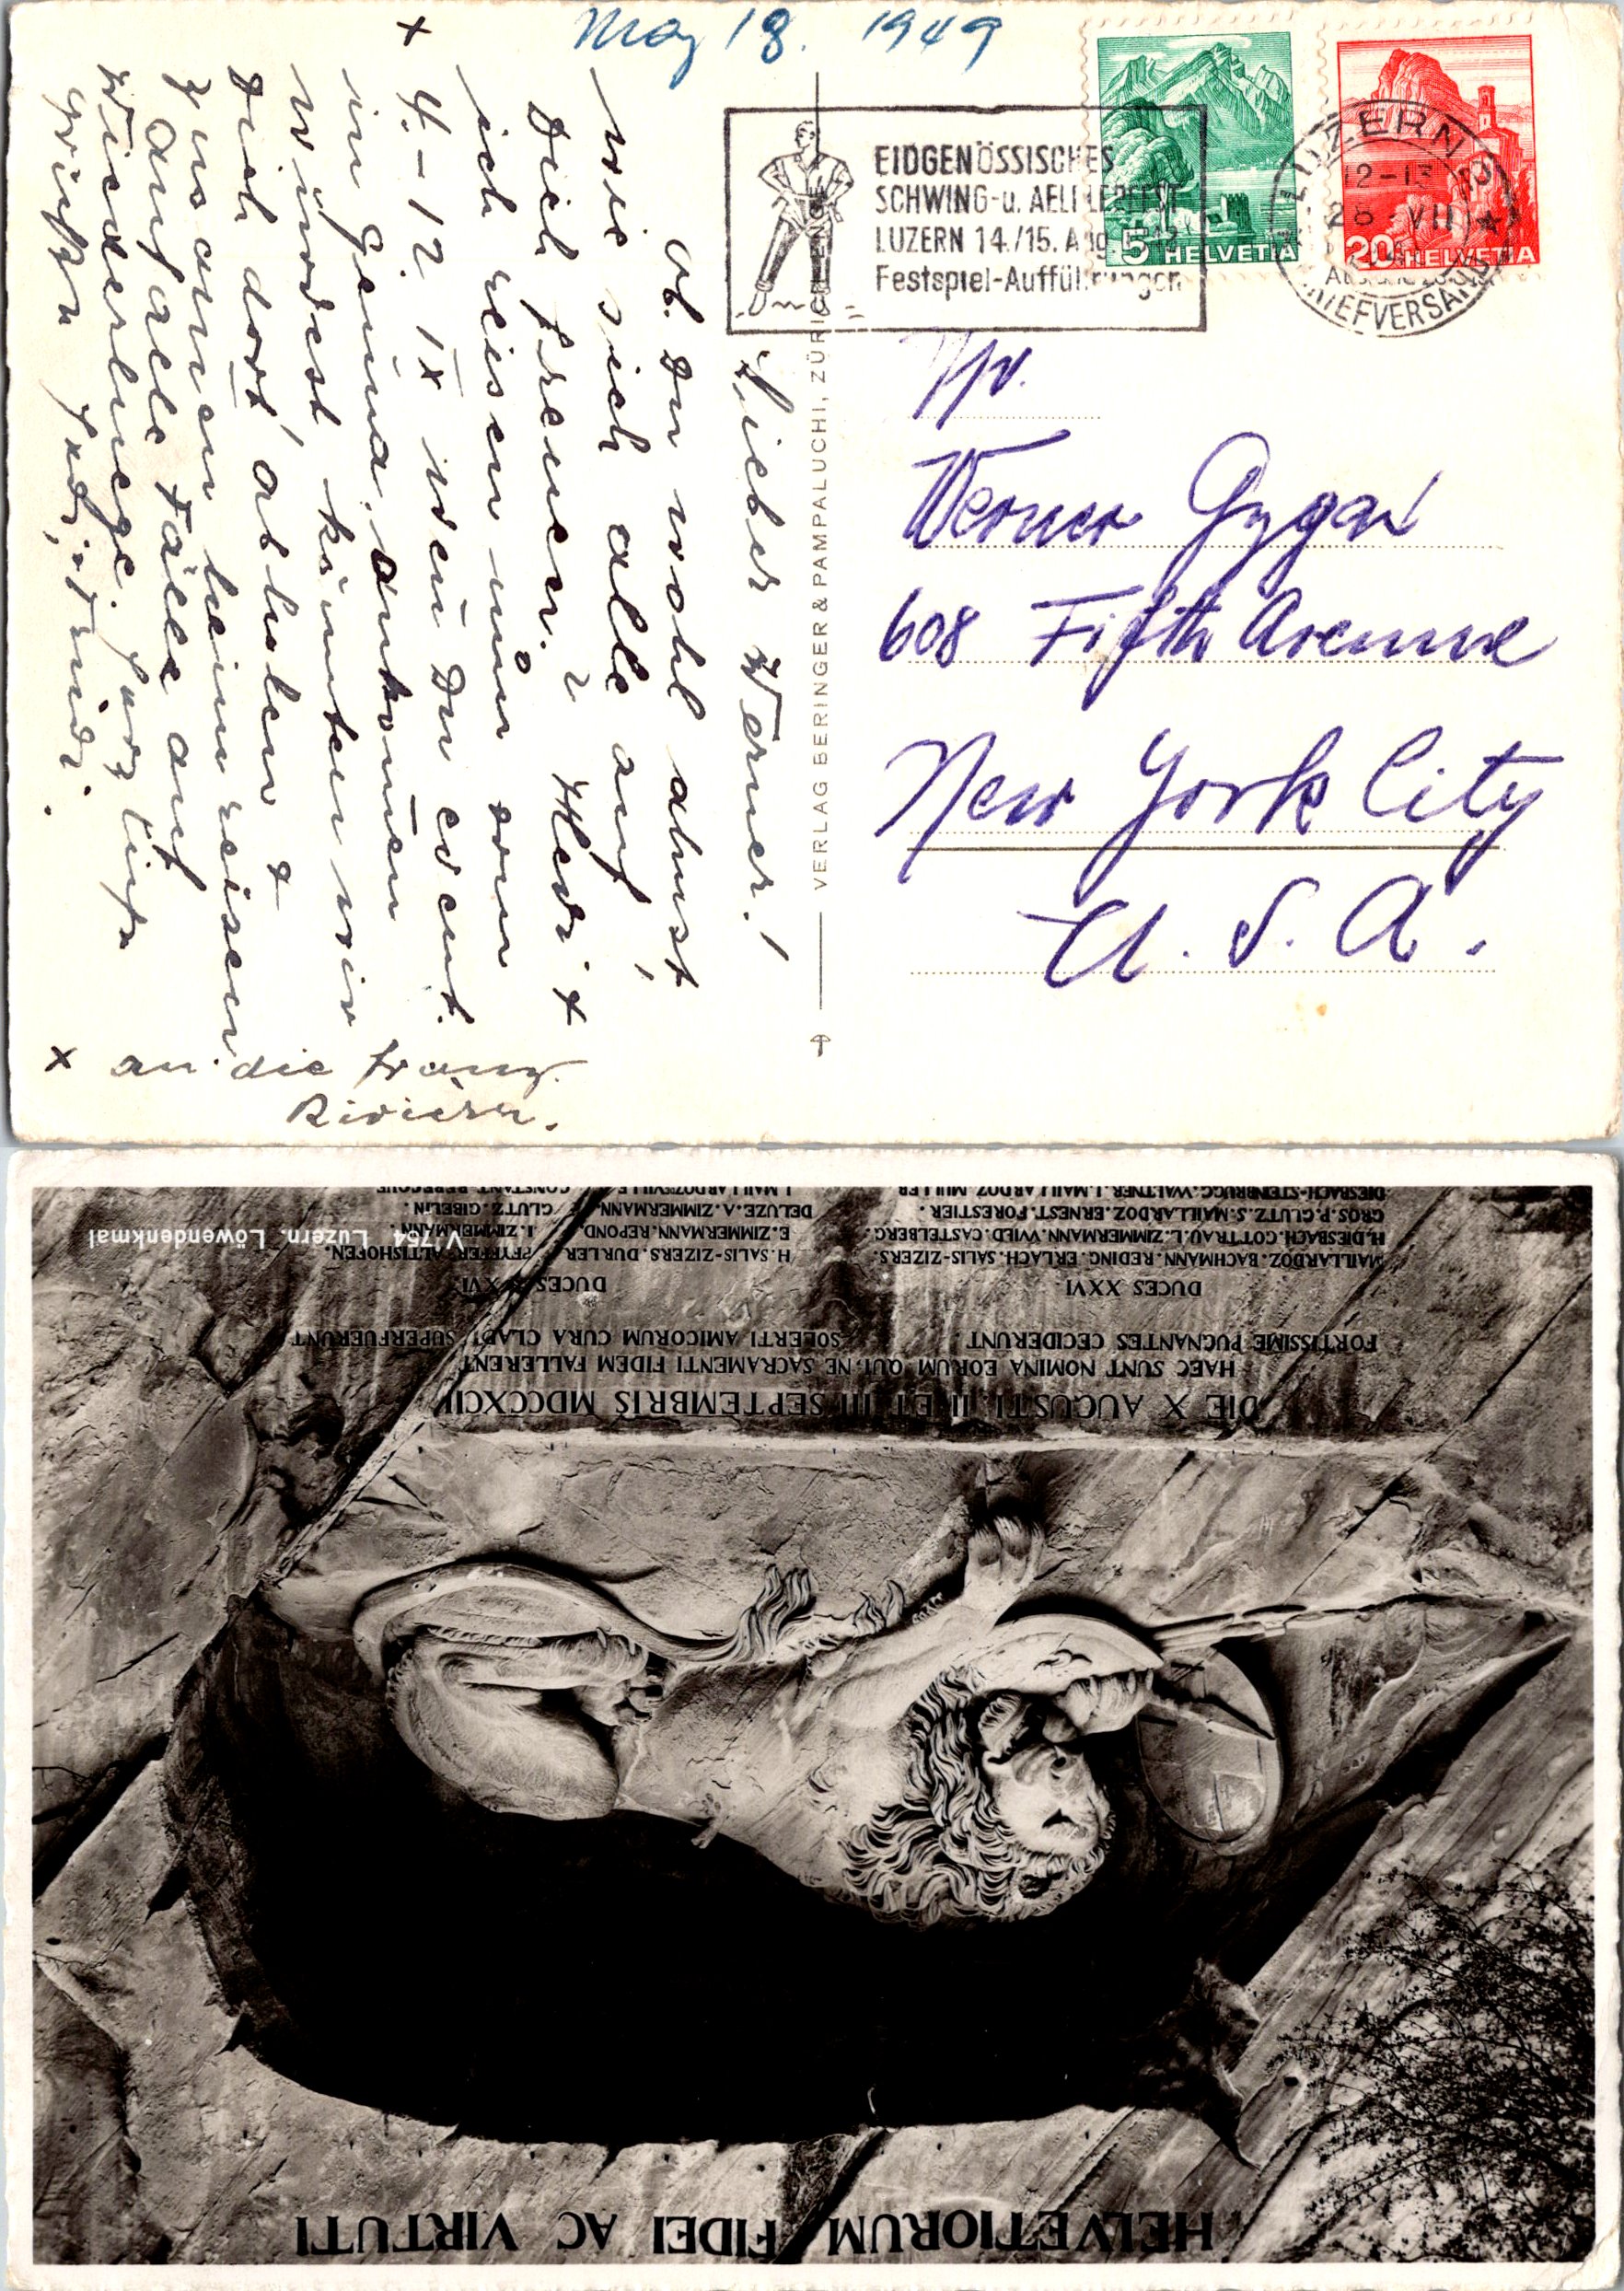 May 18. 1949
EIDGENÖSSISCHES
SCHWING-u. AELPLERFEST
LUZERN 14./15. Aug. 1948
Festspiel-Aufführungen
5 HELVETIA
20 HELVETIA
LUZERN 2
12-13
28 VII
BRIEFVERSAND
Werner Gygax
608 Fifth Avenue
New York City
U. S. A.
VERLAG BERINGER & PAMPALUCHI, ZÜRICH
Lieber Werner!
Ob Du wohl ahnst
wie sich alle auf
Dich freuen. Hedi +
ich reisen nun vom
x
4. - 12. IX wenn Du event.
in Genua ankommen
würdest könnten wir
Dich dort abholen +
zusammen heimreisen
Auf alle Fälle auf
Wiederluege. Herzliche
Grüsse
x an die franz.
Riviera.
HELVETIORUM FIDEI AC VIRTUTI
DIE X AUGUSTI, II ET III SEPTEMBRIS MDCCXCII
HAEC SUNT NOMINA EORUM QUI, NE SACRAMENTI FIDEM FALLERENT
FORTISSIME PUGNANTES CECIDERUNT. SOLERTI AMICORUM CURA CLADI SUPERFUERUNT
DUCES XXVI. DUCES XVI.
MAILLARDOZ. BACHMANN. REDING. ERLACH. SALIS-ZIZERS. H. SALIS-ZIZERS. DURLER. PFYFFER-ALTISHOFEN.
H. DIESBACH. GOTTRAU. L. ZIMMERMANN. WILD. CASTELBERG. E. ZIMMERMANN. REPOND. I. ZIMMERMANN.
GROS. P. GLUTZ. S. MAILLARDOZ. ERNEST. FORESTIER. DELUZE. A. ZIMMERMANN. GLUTZ. GIBELIN.
DIESBACH-STEINBRUGG. WALTNER. J. MAILLARDOZ. MULLER. J. MAILLARDOZ. VILLE. CONSTANT REBECQUE
V 754 Luzern. Löwendenkmal